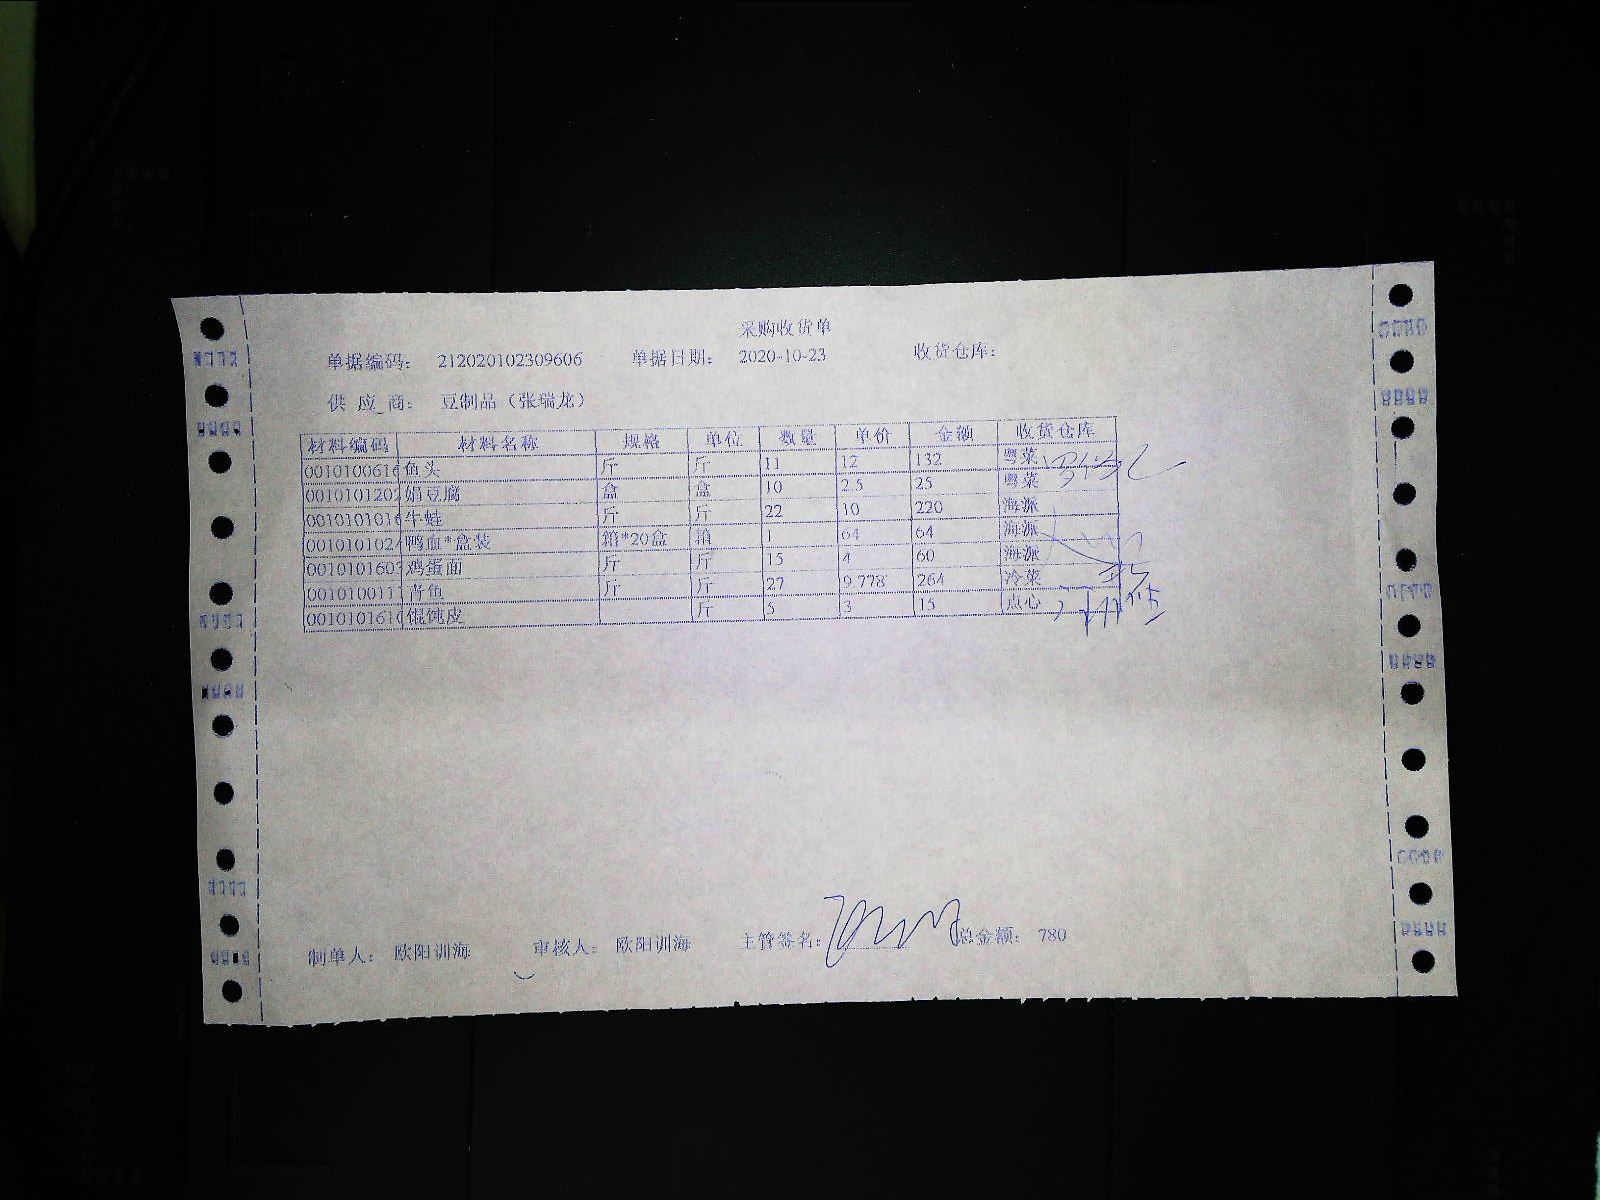 采购收货单
单据编码: 212020102309606 单据日期: 2020-10-23 收货仓库:
供 应 商: 豆制品（张瑞龙）
材料编码 材料名称 规格 单位 数量 单价 金额 收货仓库
0010100616 鱼头 斤 斤 11 12 132 粤菜
0010101202 娟豆腐 盒 盒 10 2.5 25 粤菜
0010101016 牛蛙 斤 斤 22 10 220 海派
0010101024 鸭血*盒装 箱*20盒 箱 1 64 64 海派
0010101603 鸡蛋面 斤 斤 15 4 60 海派
001010011 青鱼 斤 斤 27 9.778 264 冷菜
001010161 馄饨皮 斤 5 3 15 点心
制单人: 欧阳训海 审核人: 欧阳训海 主管签名: 总金额: 780